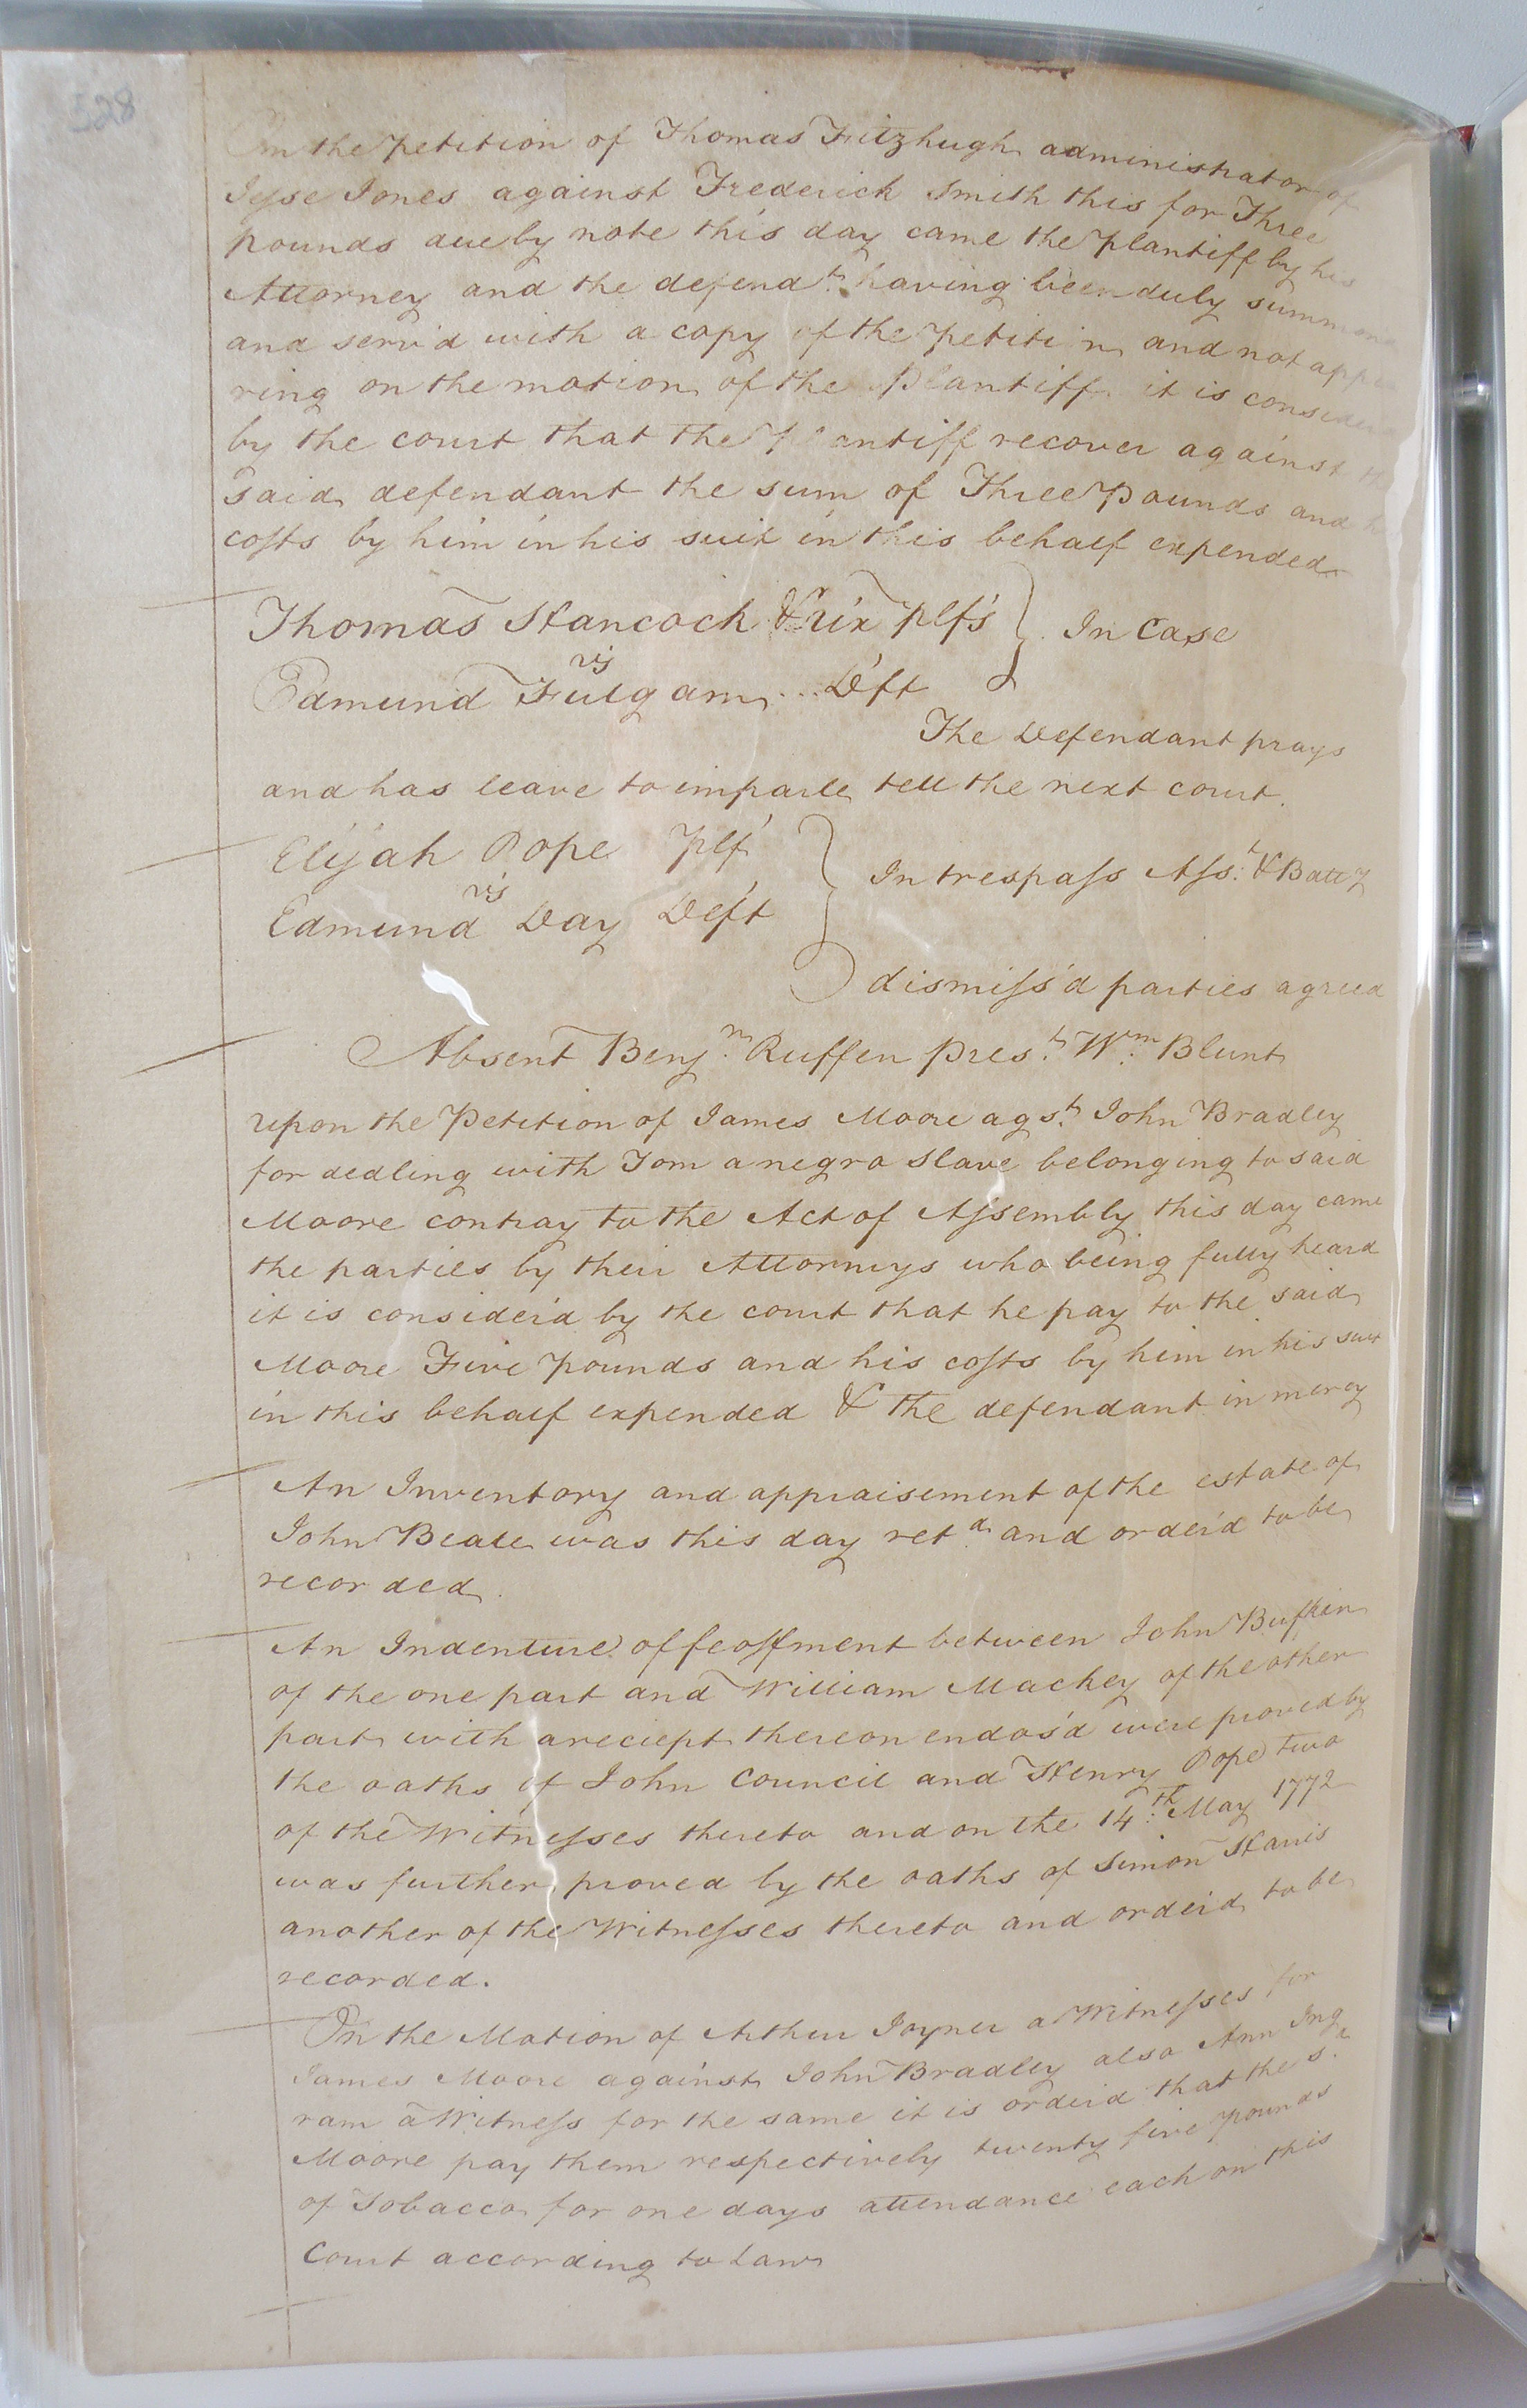 528
On the Petition of Thomas Fitzhugh administrator of
Jesse Jones against Frederick Smith this for Three
pounds due by note this day came the plantiff by his
Attorney and the defendt. having been duly summon
and serv'd with a copy of the petition and not appe
ring on the motion of the Plantiff it is consider
by the court that the Plantiff recover against th
said defendant the sum of Three Pounds and h
costs by him in his suit in this behalf expended
Thomas Hancock & ux plfs } In Case
vs
Edmund Fulgam ... Deft
The Defendant prays
and has leave to imparle tell the next court.
Elijah Pope Plf } In trespass Asst. & Batty
vs
Edmund Day Deft
dismiss'd parties agreed
Absent Benjn. Ruffen prest. Wm. Blunt
Upon the Petition of James Moore agst. John Bradley
for dedling with Tom a negro slave belonging to said
Moore contray to the Act of Assembly this day came
the parties by their Attorneys who being fully heard
it is consider'd by the court that he pay to the said
Moore Five pounds and his costs by him in his suit
in this behalf expended & the defendant in mercy
An Inventory and appraisement of the estate of
John Beale was this day retd. and order'd to be
recorded.
An Indenture of feoffment between John Bufkin
of the one part and William Mackey of the other
part with a reciept thereon endos'd were proved by
the oaths of John Council and Henry Pope two
of the Witnesses thereto and on the 14.th May 1772
was further proved by the oaths of Simon Harris
another of the Witnesses thereto and order'd to be
recorded.
On the Motion of Arthur Joyner a Witnesses for
James Moore against John Bradley also Ann Ing
ram a Witness for the same it is order'd that the sd.
Moore pay them respectively twenty five pounds
of Tobacco for one days attendance each on this
Court according to Law